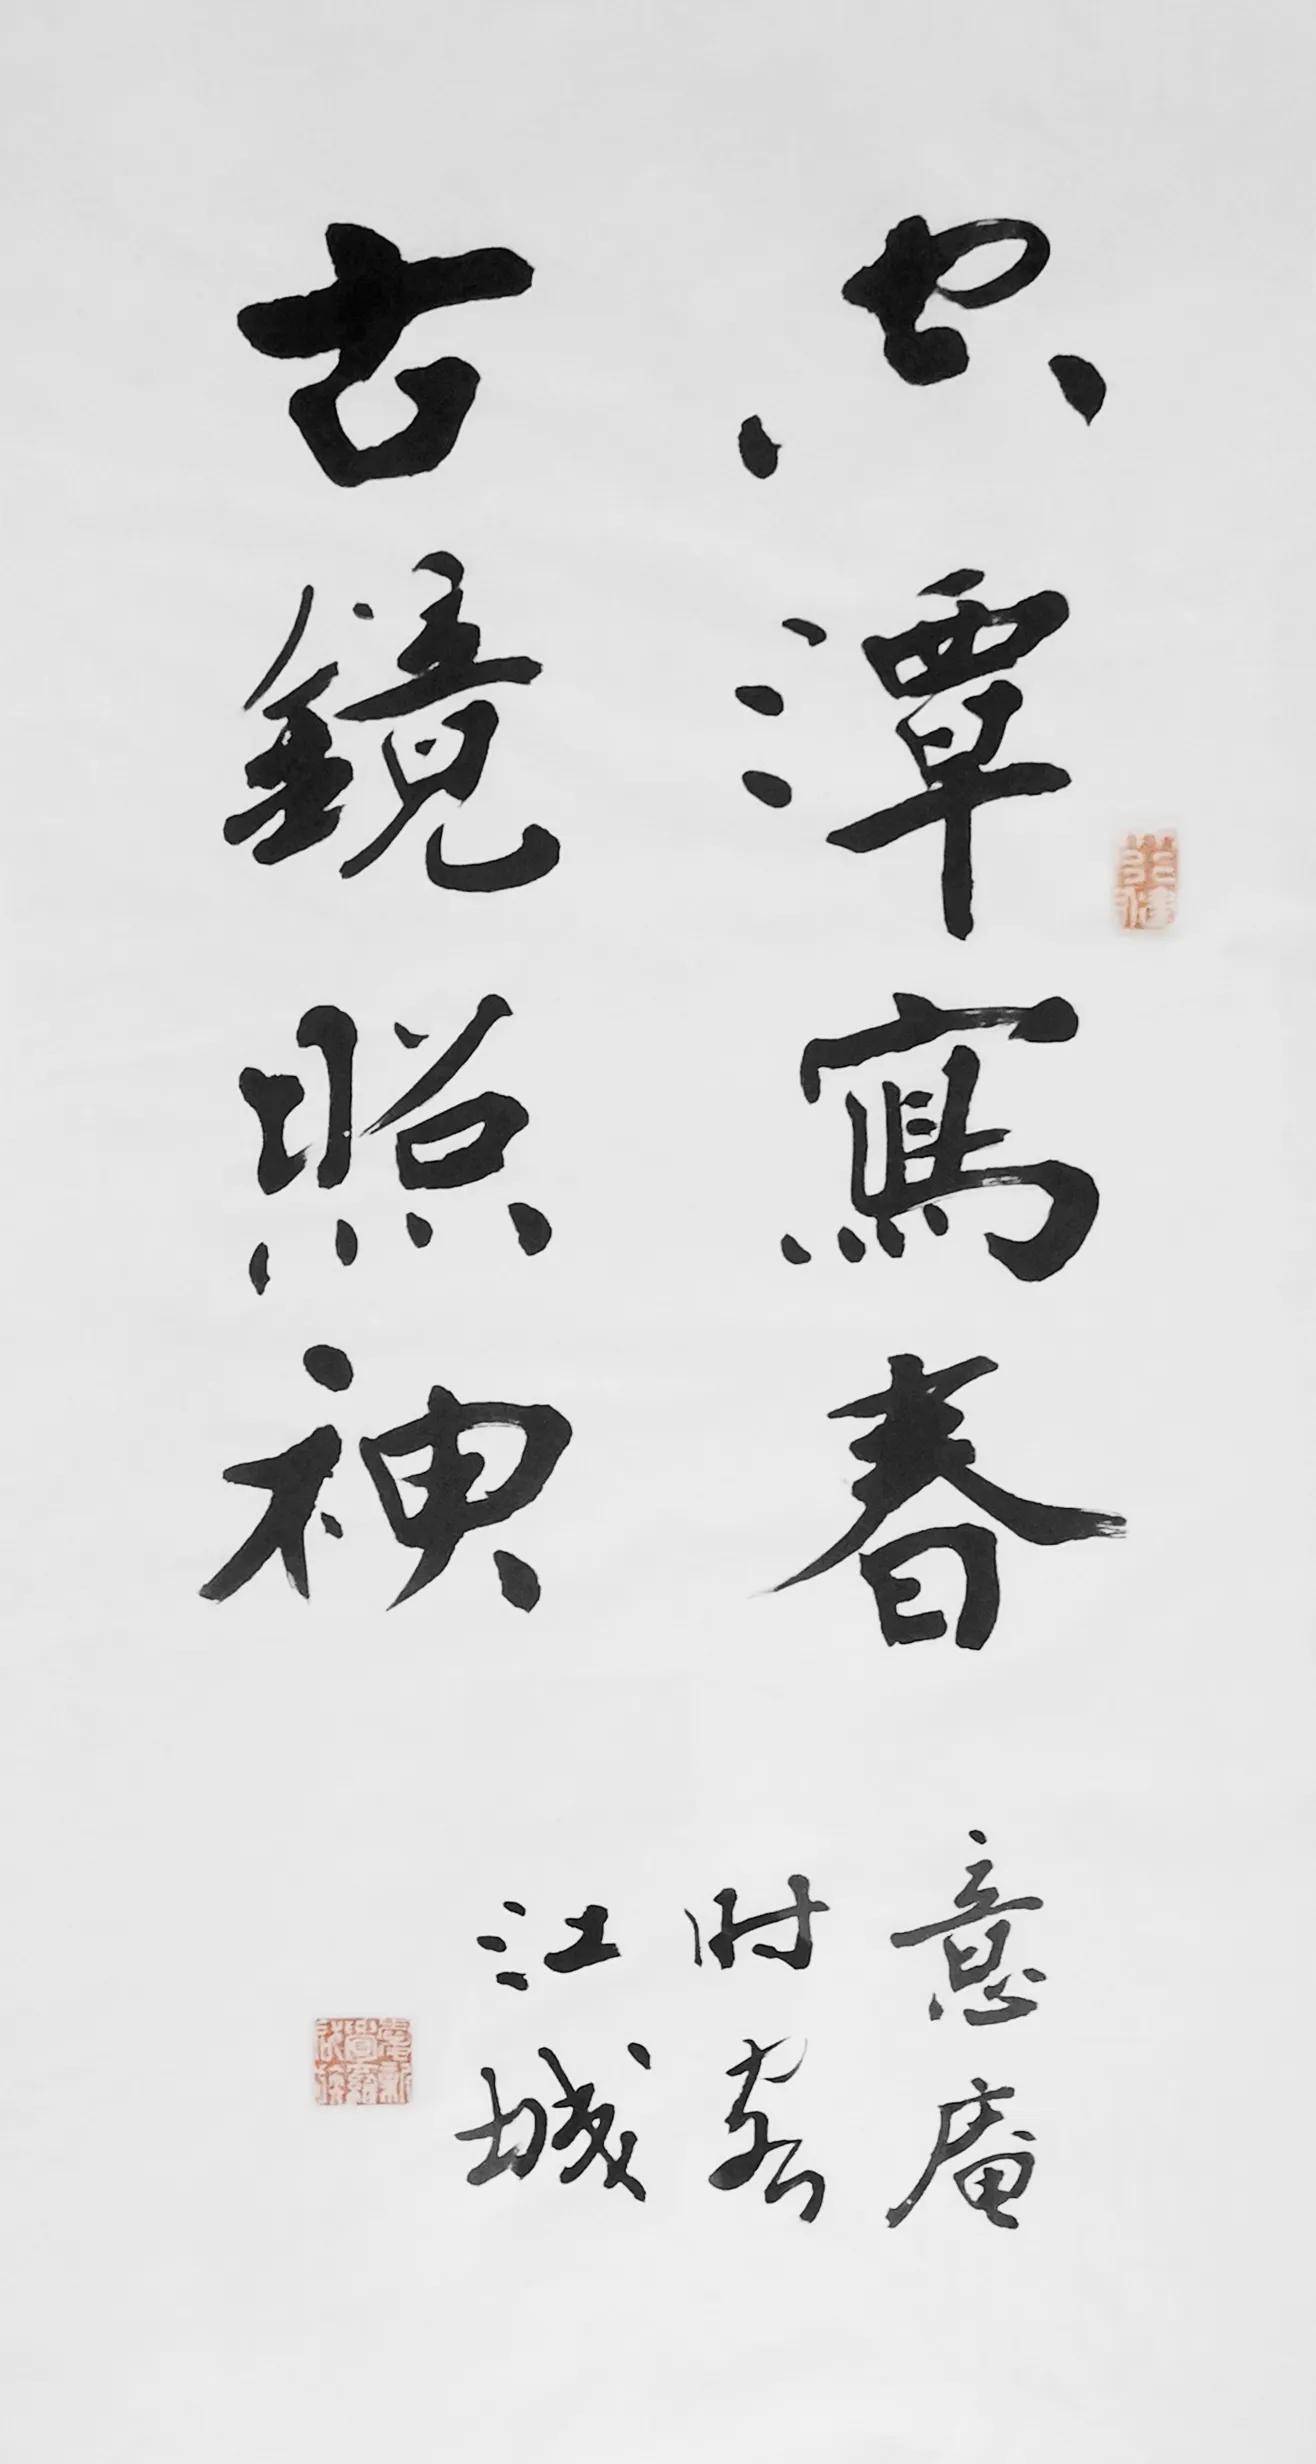 空潭寫春
古鏡照神
意庵
时客
江城
行健